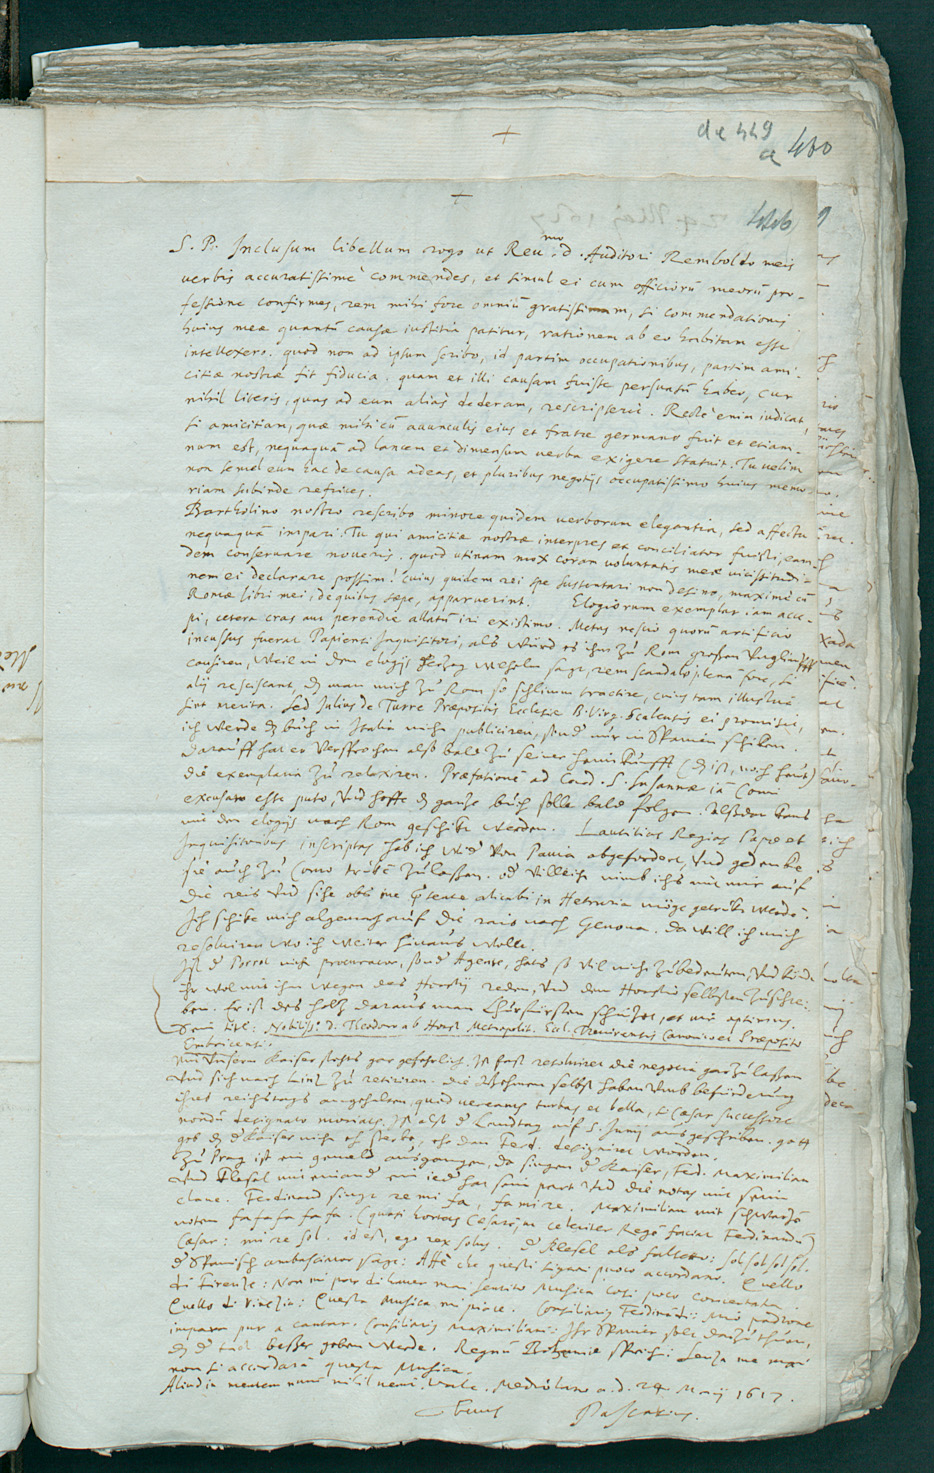 de 449
a 450
S. P. Inclusum libellum rogo ut Reu.mo d. Auditori Remboldo meis
uerbis accuratissimè commendes, et simul ei cum officiorū meorū pro-
fessione confirmes, rem mihi fore omniū gratissimam, si commendationis
huius meæ quantū causæ iustitia patitur, rationem ab eo habitam esse
intellexero. quod non ad ipsum scribo, id partim occupationibus, partim ami-
citiæ nostræ fit fiducia, quam et illi causam fuisse persuasū habeo, cur
nihil literis, quas ad eum aliàs dederam, rescripserit. Rectè enim iudicat,
si amicitiam, quæ mihi cū auunculis eius et fratre germano fuit et etiam-
num est, nequaquā ad lancem et dimensum uerba exigere statuit. Tu uelim
non semel eum hac de causa adeas, et pluribus negotijs occupatissimo huius memo-
riam subinde refrices.
Bartholino nostro rescribo minore quidem uerborum elegantia, sed affectu
nequaquā impari. Tu qui amicitiæ nostræ interpres et conciliator fuisti, ean-
dem conseruare noueris. quod utinam mox coram uoluntatis meæ uicissitudi-
nem ei declarare possim! cuius quidem rei spe sustentari non desino, maximè cū
Romæ libri mei, de quibus sæpe, apparuerint. Elogiorum exemplar iam acce-
pi, cetera cras aut perendie allatū iri existimo. Metus nescio quorū artificio
incussus fuerat Papiensi Inquisitori, als würd es ihm zu Rom großen Unglimpff
causiren, weil in den elogijs Herzog sagt, rem scandali plenam fore, si
alij resciscant, dz man mich zu Rom so schlimm tractire, cuius tam illustria
sint merita. Sed Julius de Turre Præpositus Ecclesiæ B. Virg. Scalensis ei promisit,
ich werde dz buch in Italia nicht publiciren, sond nur in Spanien schiken.
Darauff hat er versprochen alß bald zu seiner heimkunfft (dz ist, noch heut)
die exemplaria zu relaxiren. Præfationē ad Cond. S. Susannæ iā Comi
excusam esse puto, und hoffe dz ganze buch solle bald folgen. Alßdan kans
mit den elogijs nach Rom geschikt werden. Lautitias Regias Papæ et
Inquisitoribus inscriptas hab ich wid von Pauia abgefordert, und gedenke
sie auch zu Como trukē zulassen. od villeicht nimb ichs mit mir auf
die reis und sihe obs alicubi in Hetruria möge getrukt werdē.
Ich schike mich algemach auf die rais nach Genoua. da will ich mich
resoluiren wo ich weiter hinaus wolle.
Ist d Porrot nicht procurator, sond Agente, hats so vil nicht zubedeuten, und könd
Ihr wol mit ihm wegen des Horstij reden, und dem Horstio selbsten zuschrei-
ben. Er ist des holz daraus man Churfürsten schnizet, et mi optimus.
Sein titl: Nobiliss.o d. Theodoro ab Horst Metropolit. Eccl. Treuirensis Canonico et Præposito
Embricensi.
Mit unserm Kaiser stehts gar gefehrlich. Ist fast resoluiret die negocia gar zulassen
und sich nach Linz zu retiriren. die Böhmen selbst haben umb befürderung
ihres reichstags angehalten, quod uereantur turbas et bella, si Cæsar successore
nondū designato moriatur. Ist alßo d Landtag auf 5. Junij ausgeschriben. gott
geb dz d Kaiser nicht eh sterbe, ehe dan Ferd. designiret worden.
Zu Prag ist ein gemeld ausgangen, da singen d Kaiser, Ferd. Maximilian
und Klesel mit einand ein ied hat sein part und die noten mit sein
claue. Ferdinand singt re mi fa, fa mi re. Maximilian mit schwarzē
noten fa fa fa fa fa. (quasi hortetur Cæsarē, ut celeriter Regē faciat Ferdinandū)
Cæsar: mi re sol. id est, ego rex solus. d Klesel als falset: sol sol sol sol.
d Spanisch ambasciator sagt: Affè che questi signori puoco accordano. Quello
di Firenze: Non mi par di hauer mai sentito Musica cosi poco concertata.
Quello di Vinezia: Questa Musica mi piace. Consiliarius Ferdinādi: Mio padrone
impara pur a cantar. Consiliarius Maximiliani: Ihr Spanier solt darzu thuen,
dz d takt besser geben werde. Regnū Bohemiæ spricht: Senza me mai
non si accordarà questa Musica.
Aliud in mentem nunc nihil uenit. Vale. Mediolano a. d. 24 Maij 1617.
Tuus